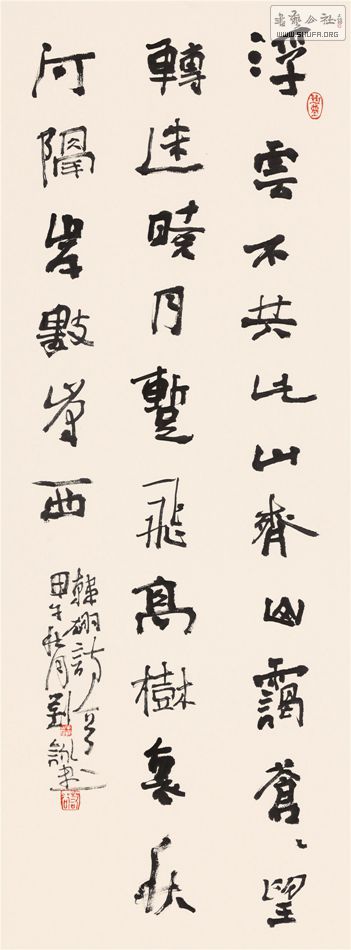 書藝公社
WWW.SHUFA.ORG
浮雲不共此山齊山靄蒼〻望
轉迷曉月蹔飛高樹裏秋
河隔岸數峯西
韓翃詩
甲午秋月劉